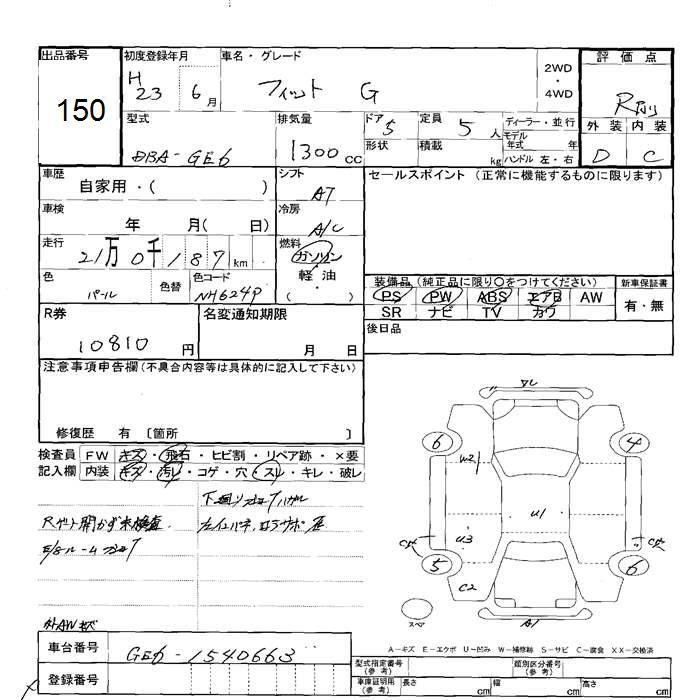 出品番号
150
初度登録年月
H 23 6月
車名・グレード
フィット G
2WD
・
4WD
評価点
R
外装 内装
D C
型式
DBA-GE6
排気量
1300cc
ドア 5
形状
定員 5人
積載 kg
ディーラー・並行
モデル年式 年
ハンドル 左・右
車歴
自家用・( )
シフト
AT
セールスポイント (正常に機能するものに限ります)
車検
年 月( 日)
冷房
A/C
走行
21万0千187km
燃料
ガソリン
軽油
( )
色
パール
色替
色コード
NH624P
装備品 (純正品に限り○をつけてください)
PS PW ABS エアB AW
SR ナビ TV カワ
新車保証書
有・無
R券
10810円
名変通知期限
月 日
後日品
注意事項申告欄(不具合内容等は具体的に記入して下さい)
修復歴 有 〔箇所 〕
検査員記入欄
FW キズ・飛石・ヒビ割・リペア跡・×要
内装 キズ・汚レ・コゲ・穴・スレ・キレ・破レ
下廻り
Rゲート開かず未検査
外AWキズ
6 4 5 6
U2 U1 U3 C2 A1
スペア
A-キズ E-エクボ U-凹み W-補修跡 S-サビ C-腐食 XX-交換済
車台番号
GE6-1540663
登録番号
型式指定番号(参考)
類別区分番号(参考)
車庫証明用(参考) 長さ cm 幅 cm 高さ cm